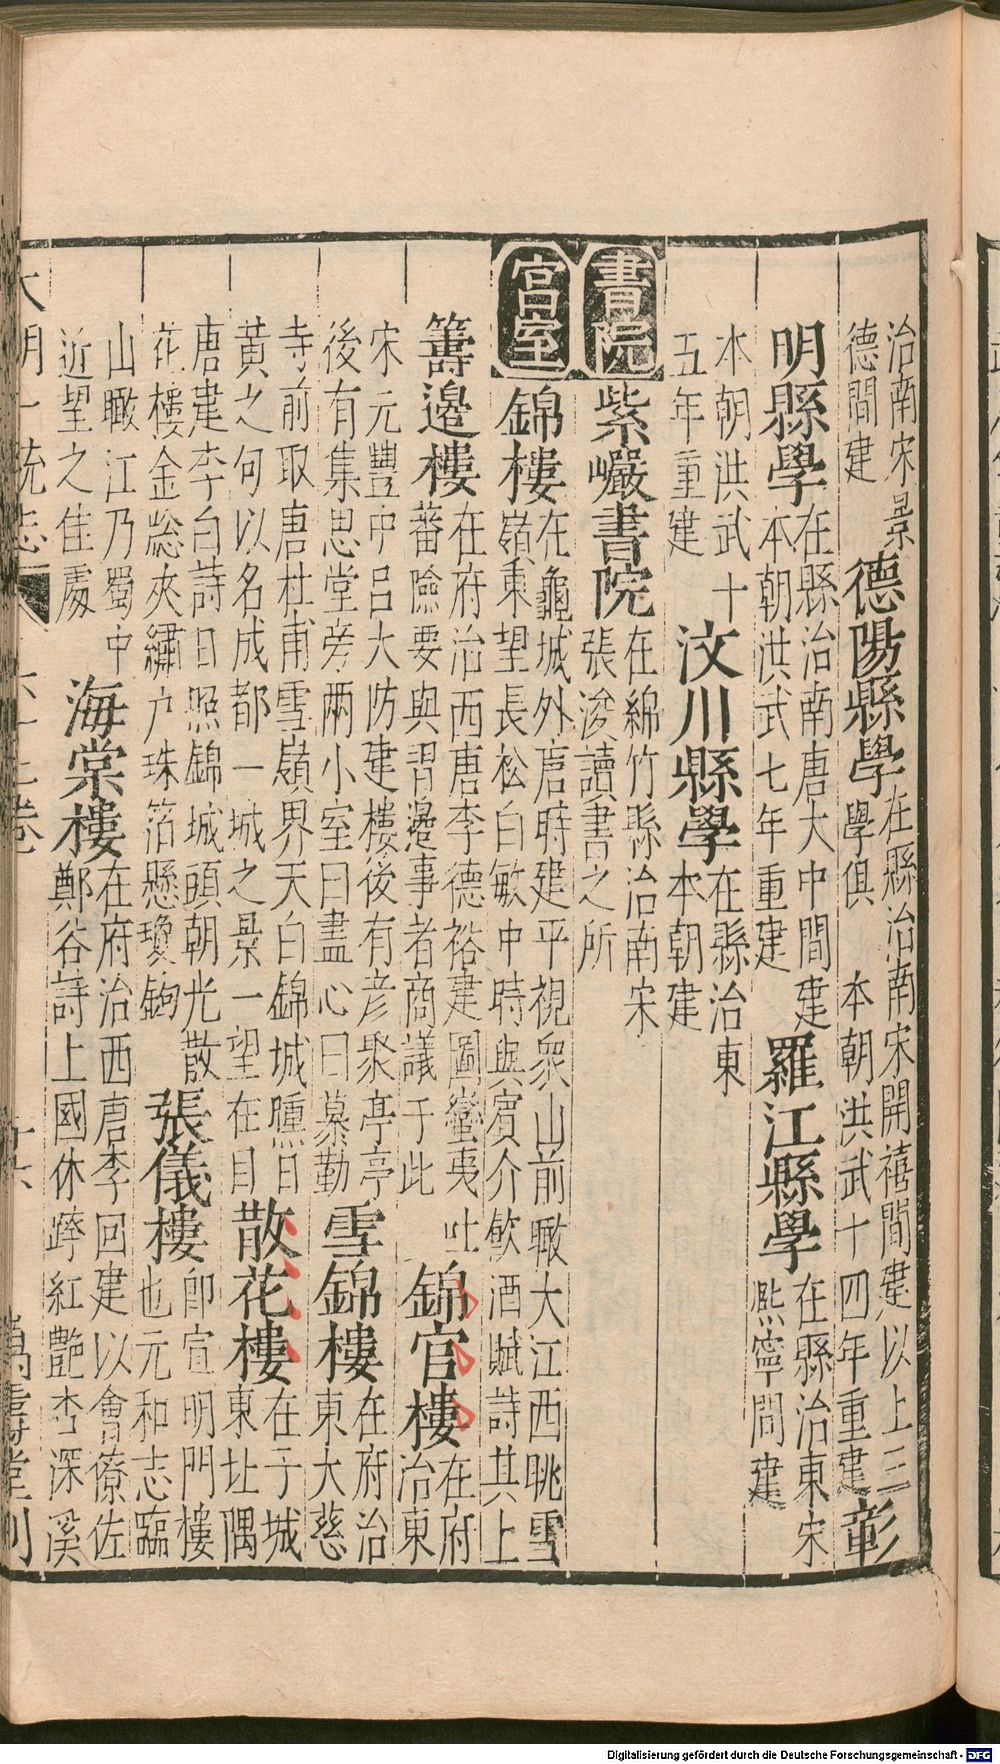 治南宋景
德間建
德陽縣學
在縣治南宋開禧間建以上三
學俱 本朝洪武十四年重建
彰
明縣學
在縣治南唐大中間建
本朝洪武七年重建
羅江縣學
在縣治東宋
熈寧間建
本朝洪武十
五年重建
汶川縣學
在縣治東
本朝建
書院
紫巗書院
在綿竹縣治南宋
張浚讀書之所
宮室
錦樓
在龜城外唐時建平視衆山前瞰大江西眺雪
嶺東望長松白敏中時與賓介飲酒賦詩其上
籌邊樓
在府治西唐李德裕建圖蠻夷吐
蕃險要與習邊事者商議于此
錦官樓
在府
治東
宋元豐中呂大防建樓後有彦聚亭亭
後有集思堂旁兩小室曰盡心曰慕勤
雪錦樓
在府治
東大慈
寺前取唐杜甫雪嶺界天白錦城曛日
黃之句以名成都一城之景一望在目
散花樓
在子城
東址隅
唐建李白詩日照錦城頭朝光散
花樓金䆫夾繡户珠箔懸瓊鉤
張儀樓
卽宣明門樓
也元和志臨
山瞰江乃蜀中
近望之佳處
海棠樓
在府治西唐李回建以會僚佐
鄭谷詩上國休誇紅艶杏深溪
大明一統志
六十七卷
十六
萬壽堂刊
Digitalisierung gefördert durch die Deutsche Forschungsgemeinschaft - DFG